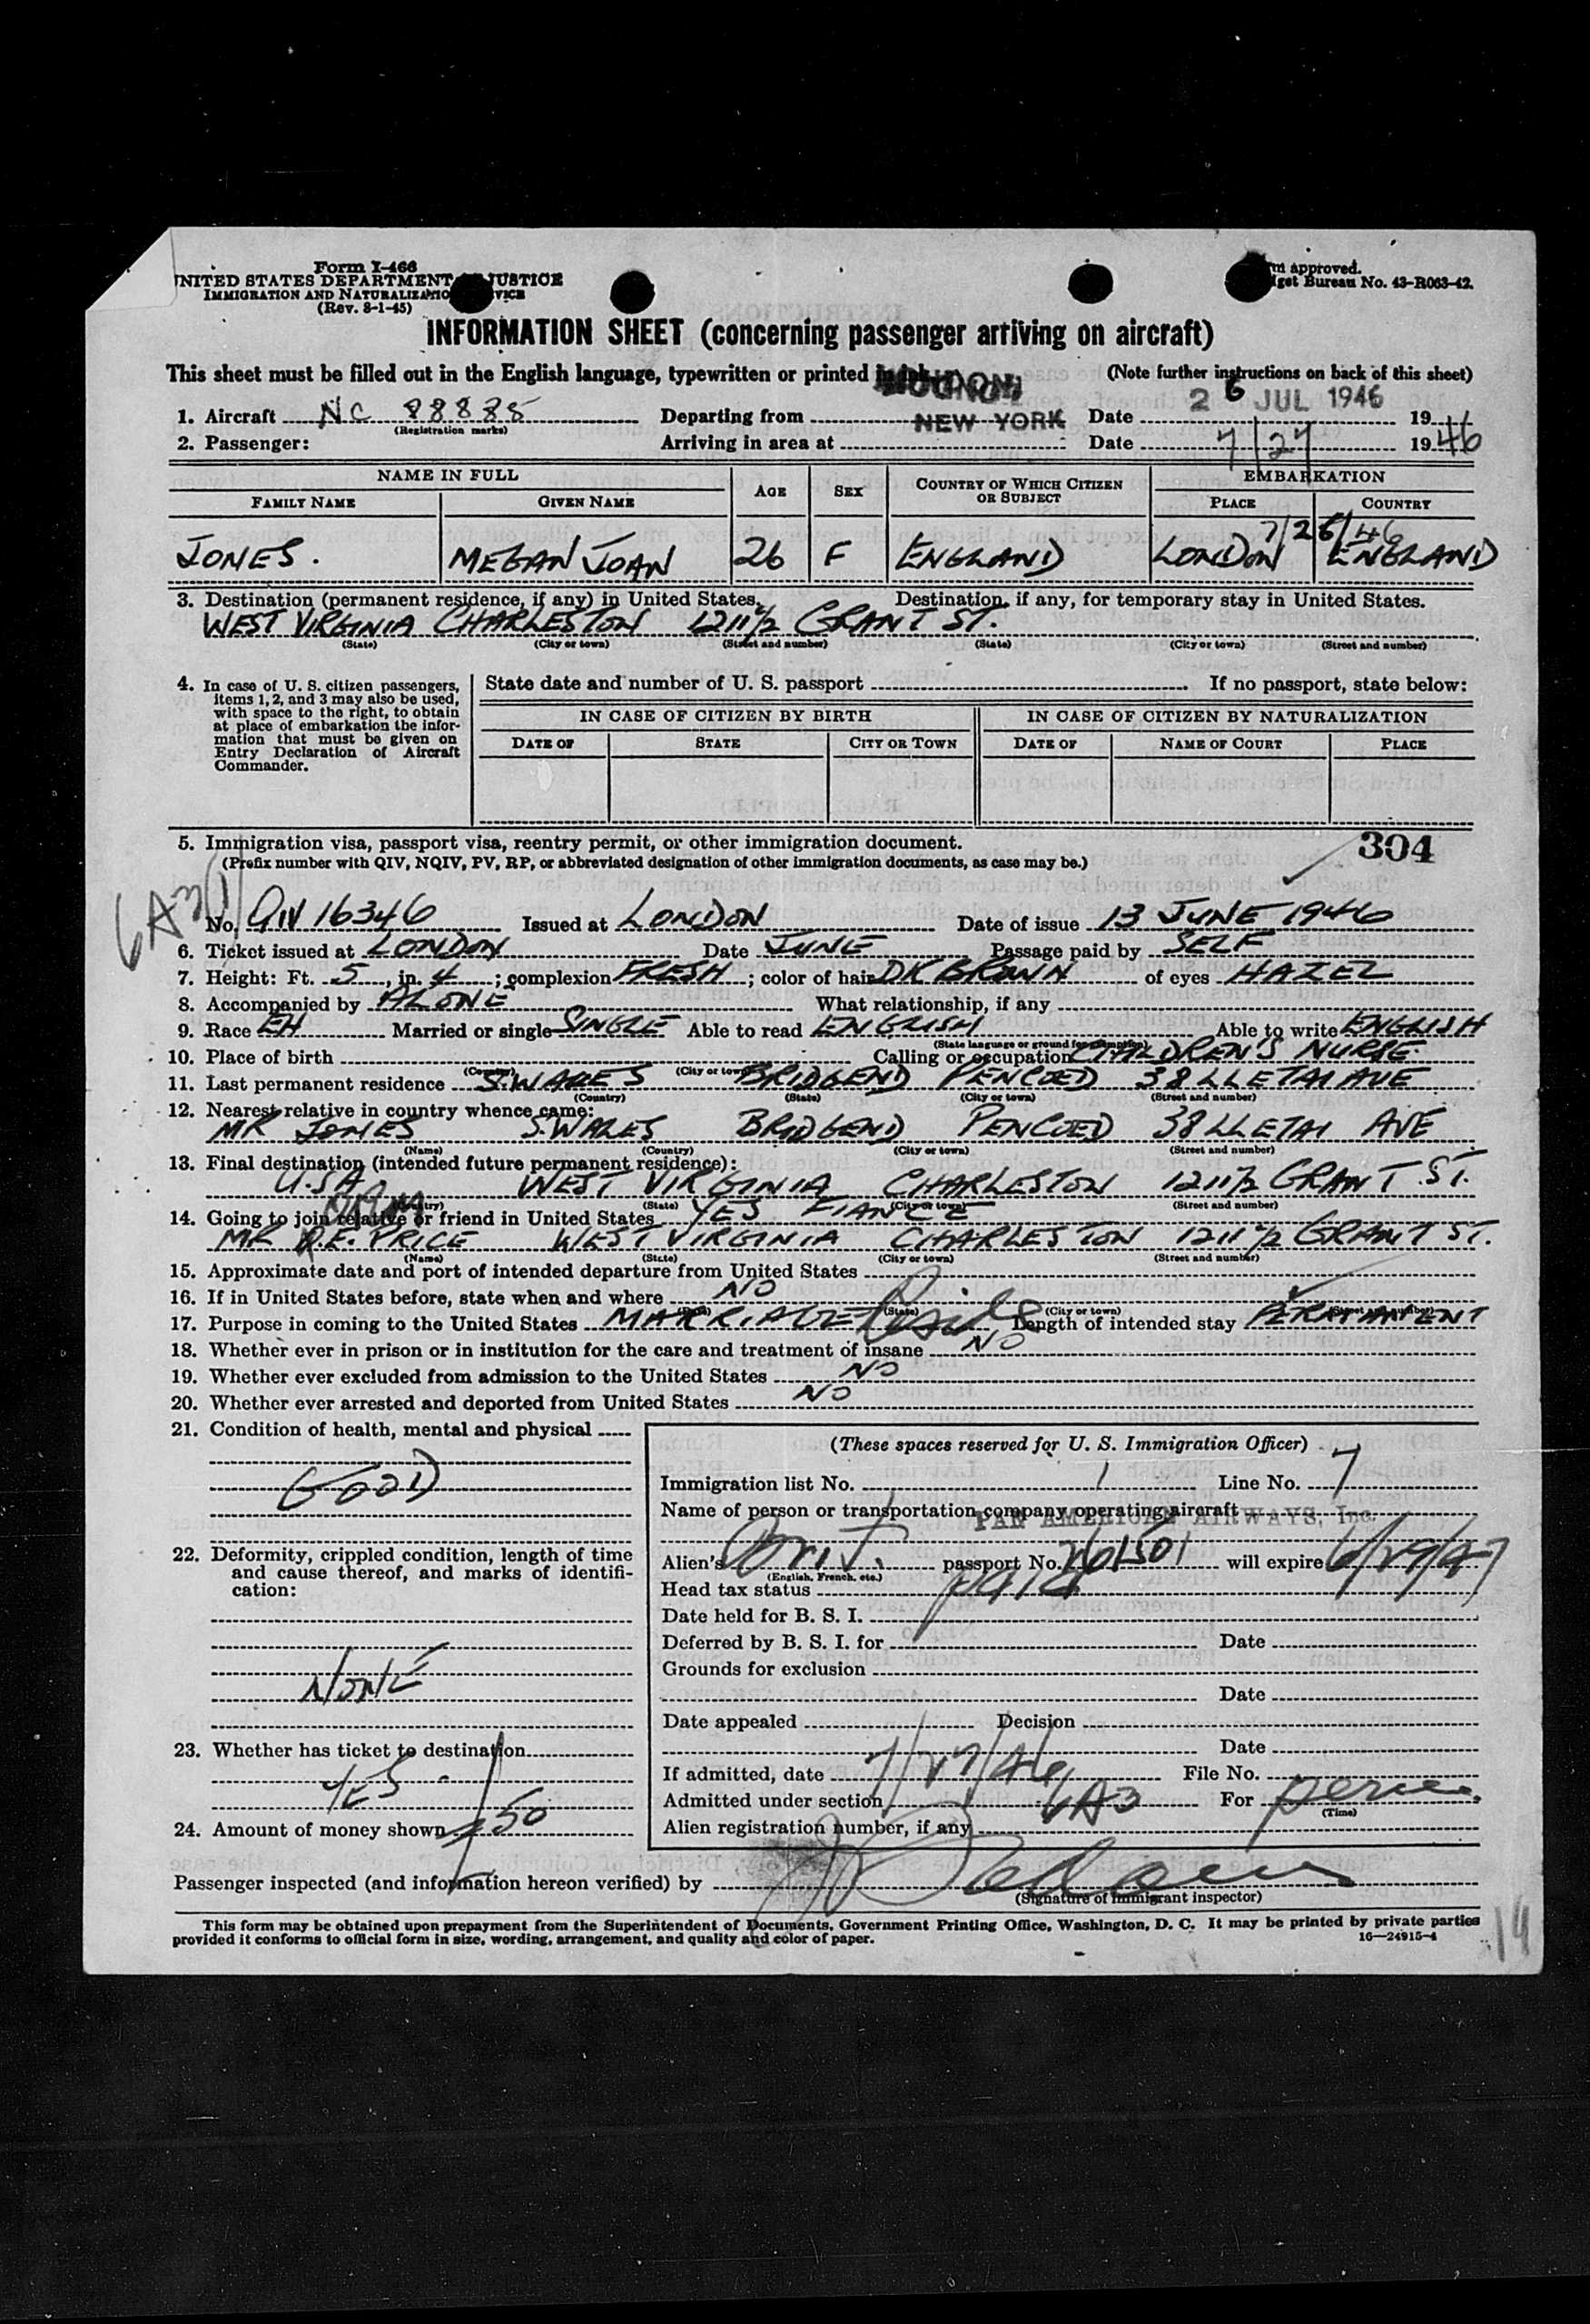 Form I-466
UNITED STATES DEPARTMENT JUSTICE
IMMIGRATION AND NATURALIZATIO VICE
(Rev. 8-1-45)
m approved.
get Bureau No. 43-R063-42.
INFORMATION SHEET (concerning passenger arriving on aircraft)
This sheet must be filled out in the English language, typewritten or printed in ink. (Note further instructions on back of this sheet)
LONDON
1. Aircraft NC 88885 Departing from Date 26 JUL 1946 19
(Registration marks)
2. Passenger: Arriving in area at NEW YORK Date 7/27 1946
NAME IN FULL AGE SEX COUNTRY OF WHICH CITIZEN OR SUBJECT EMBARKATION
FAMILY NAME GIVEN NAME PLACE COUNTRY
7/26/46
JONES. MEGAN JOAN 26 F ENGLAND LONDON ENGLAND
3. Destination (permanent residence, if any) in United States. Destination, if any, for temporary stay in United States.
WEST VIRGINIA CHARLESTON 1211½ GRANT ST.
(State) (City or town) (Street and number) (State) (City or town) (Street and number)
4. In case of U. S. citizen passengers, items 1, 2, and 3 may also be used, with space to the right, to obtain at place of embarkation the information that must be given on Entry Declaration of Aircraft Commander.
State date and number of U. S. passport If no passport, state below:
IN CASE OF CITIZEN BY BIRTH IN CASE OF CITIZEN BY NATURALIZATION
DATE OF STATE CITY OR TOWN DATE OF NAME OF COURT PLACE
5. Immigration visa, passport visa, reentry permit, or other immigration document. 304
(Prefix number with QIV, NQIV, PV, RP, or abbreviated designation of other immigration documents, as case may be.)
6A3
No. QIV 16346 Issued at LONDON Date of issue 13 JUNE 1946
6. Ticket issued at LONDON Date JUNE Passage paid by SELF
7. Height: Ft. 5, in. 4; complexion FRESH; color of hair DK BROWN of eyes HAZEL
8. Accompanied by ALONE What relationship, if any
9. Race EH Married or single SINGLE Able to read ENGLISH Able to write ENGLISH
(State language or ground for exemption)
10. Place of birth Calling or occupation CHILDREN'S NURSE
(Country) (City or town)
11. Last permanent residence S. WALES BRIDGEND PENCOED 38 LLETAI AVE
(Country) (State) (City or town) (Street and number)
12. Nearest relative in country whence came:
MR JONES S. WALES BRIDGEND PENCOED 38 LLETAI AVE
(Name) (Country) (City or town) (Street and number)
13. Final destination (intended future permanent residence):
U.S.A. WEST VIRGINIA CHARLESTON 1211½ GRANT ST.
(Country) (State) (City or town) (Street and number)
14. Going to join relative or friend in United States YES FIANCE
MR D.E. PRICE WEST VIRGINIA CHARLESTON 1211½ GRANT ST.
(Name) (State) (City or town) (Street and number)
15. Approximate date and port of intended departure from United States
16. If in United States before, state when and where NO
(Date) (State) (City or town) (Street and number)
17. Purpose in coming to the United States MARRIAGE Reside Length of intended stay PERMANENT
18. Whether ever in prison or in institution for the care and treatment of insane NO
19. Whether ever excluded from admission to the United States NO
20. Whether ever arrested and deported from United States NO
21. Condition of health, mental and physical
GOOD
22. Deformity, crippled condition, length of time and cause thereof, and marks of identification:
NONE
23. Whether has ticket to destination
YES
24. Amount of money shown $50
(These spaces reserved for U. S. Immigration Officer)
Immigration list No. 1 Line No. 7
Name of person or transportation company operating aircraft
PAN AMERICAN AIRWAYS, Inc.
Alien's Brit. passport No. will expire 6/29/47
(English, French, etc.)
Head tax status paid
Date held for B. S. I.
Deferred by B. S. I. for Date
Grounds for exclusion
Date
Date appealed Decision
Date
If admitted, date 7/27/46 File No.
Admitted under section 6A3 For perm.
(Time)
Alien registration number, if any
Passenger inspected (and information hereon verified) by
(Signature of immigrant inspector)
This form may be obtained upon prepayment from the Superintendent of Documents, Government Printing Office, Washington, D. C. It may be printed by private parties
provided it conforms to official form in size, wording, arrangement, and quality and color of paper. 16—24915-4
14